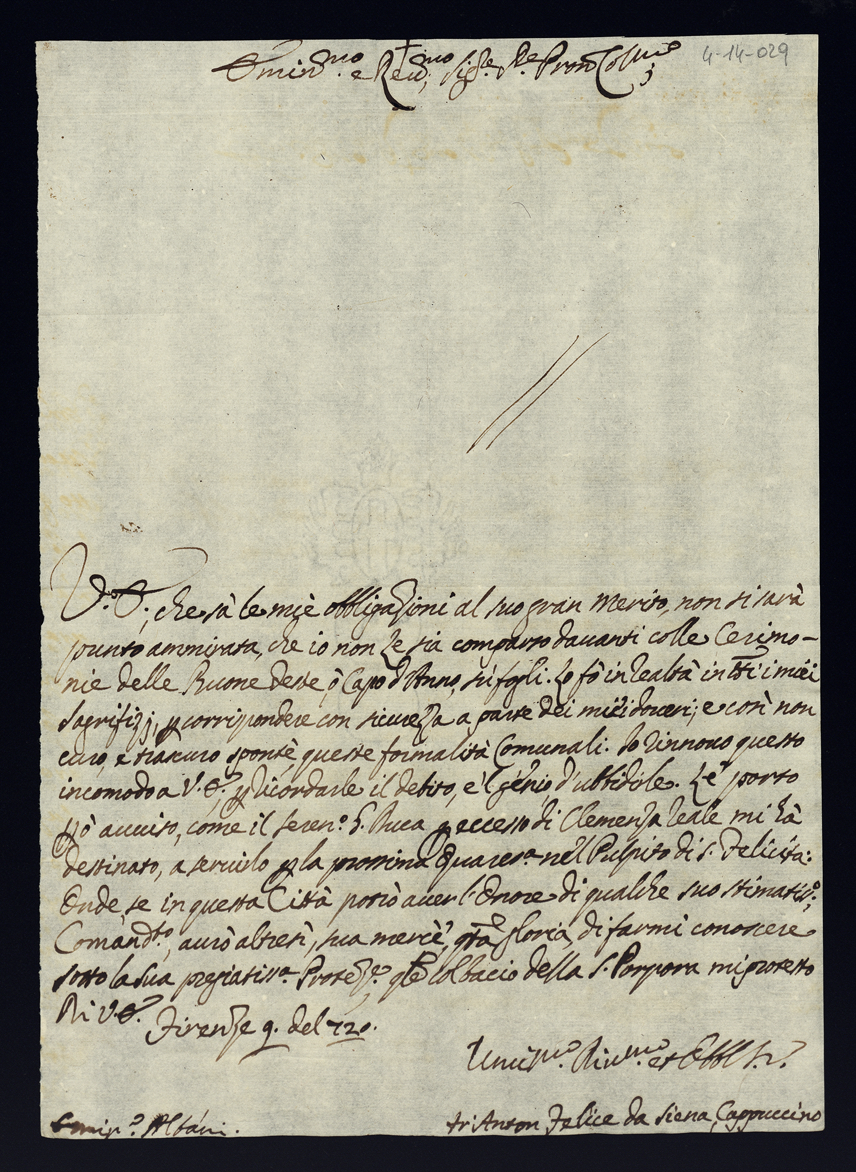 4-14-029
Emin.mo e Reu.mo Sig.re P.ne Pron Col.mo
V.E., che sà le mie obbligazioni al suo gran merito, non si sarà
punto ammirata, che io non Le sia comparso dauanti colle Cerimo-
nie delle Buone feste ò Capo d'Anno, sù fogli. Lo fò in realtà in tti i miei
Sagrifizj, p corrispondere con sicurezza a parte dei miei doueri; e così non
curo, e trascuro queste formalità Comunali. Io rinnouo questo
incomodo a V.E. p ricordarle il debito, e 'l genio d'ubbidirle. Le porto
pò auuiso, come il seren.o G. Duca p eccesso di Clemenza reale mi hà
destinato, a seruirlo p la prossima Quares.a nel Pulpito di S. Felicita:
Onde se in questa Città potrò auer l'Onore di qualche suo stimatis.o
Comand.to, aurò altresì, sua mercè, qta gloria, di farmi conoscere
sotto la sua pregiatiss.a Protez.e col bacio della S. Porpora mi protesto
Di V.E.
Firenze 9. del 720.
Umilis.o Diu.mo et Obbl. S.r
Emin.o Albani.
fr: Anton Felice da Siena Cappuccino